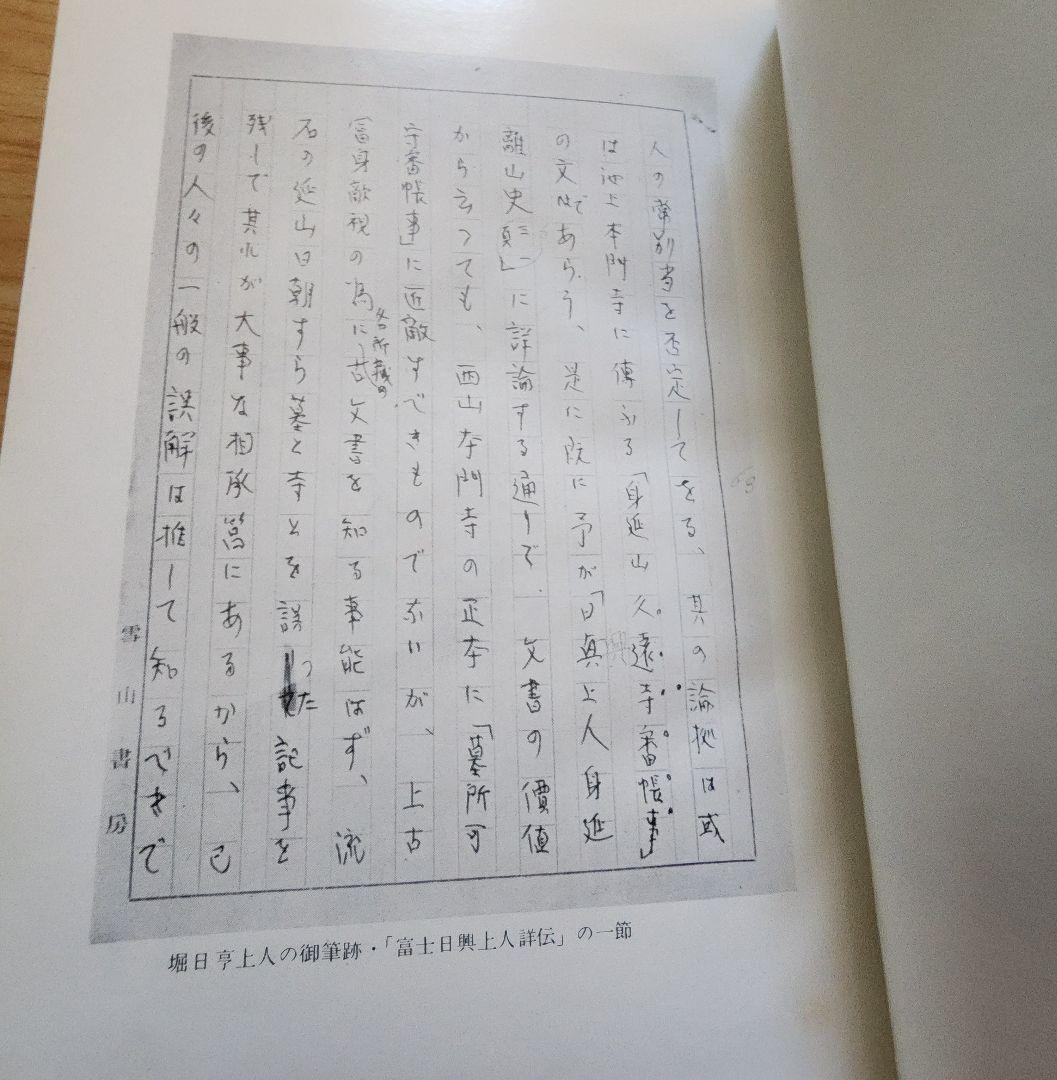 人の常別当を否定してをる、其の論拠は或
は池上本門寺に傳ふる「身延山久遠寺番帳事」
の文であらう、是に既に予が「日興上人身延
離山史」に詳論する通りで 文書の價値
から云つても、西山本門寺の正本に「墓所可
守番帳事」に匹敵すべきものでないが、上古
冨身敵視の為に各所蔵の古文書を知る事能はず、流
石の延山日朝すら墓と寺とを誤つた記事を
残して其れが大事な相承筥にあるから、已
後の人々の一般の誤解は推して知るべきで
雪山書房
堀日亨上人の御筆跡・「富士日興上人詳伝」の一節